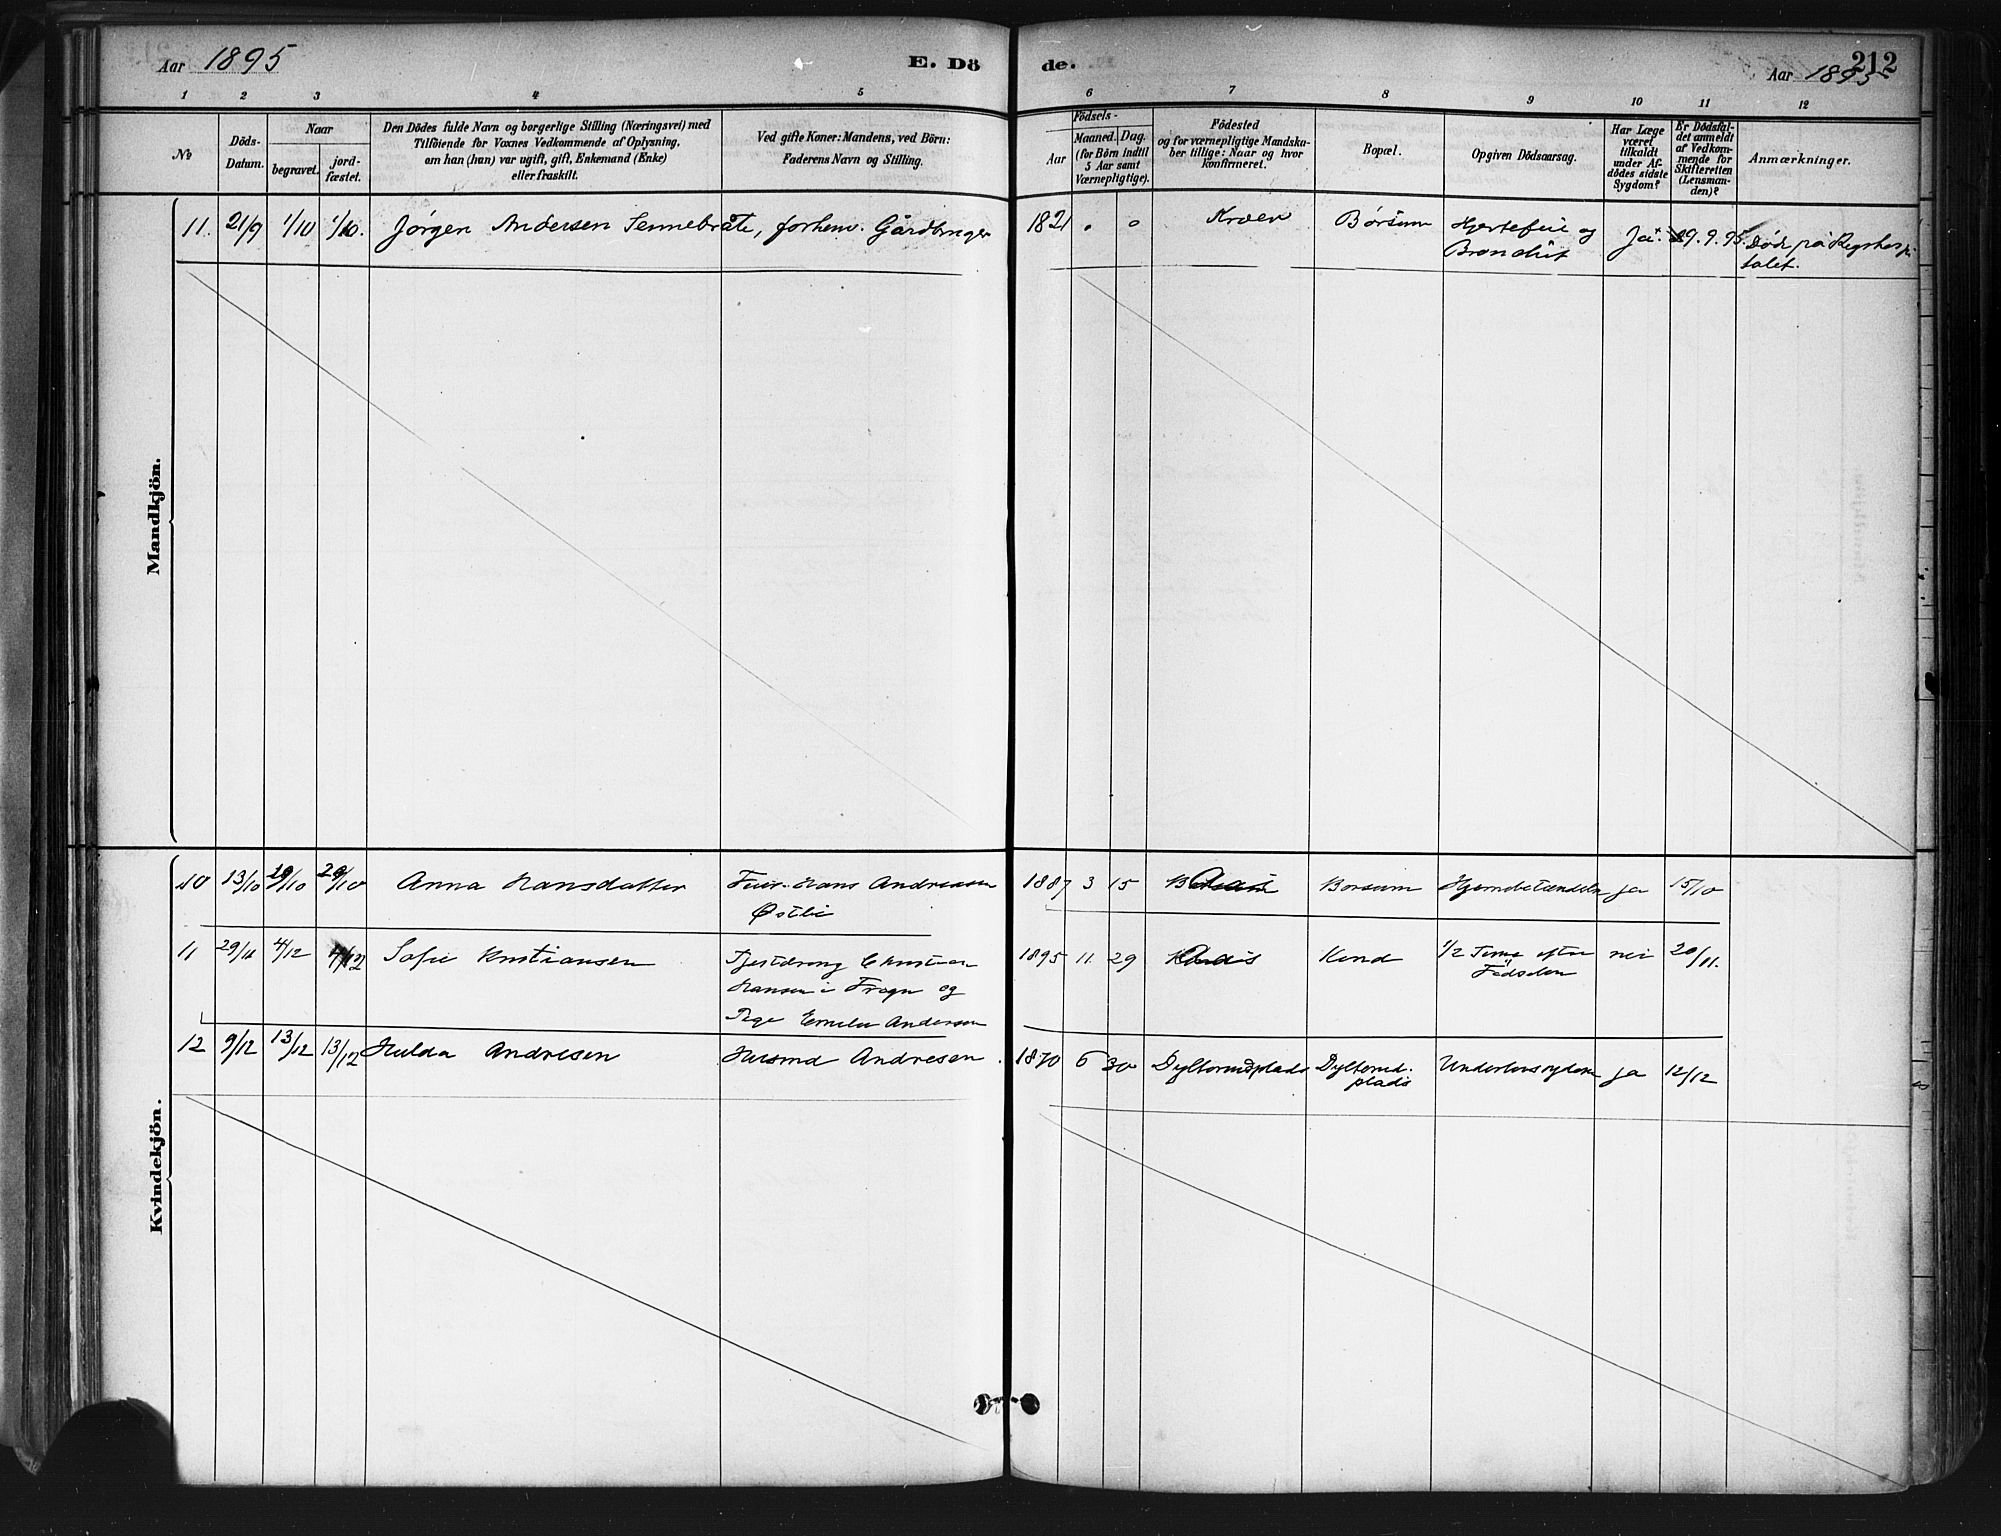 Aar 1895
E. Dö
de.
212
Aar 1895
1 2 3 4 5 6 7 8 9 10 11 12
№
Döds-
Datum.
Naar
begravet.
jord-
fæstet.
Den Dödes fulde Navn og borgerlige Stilling (Næringsvei) med
Tilföiende for Voxnes Vedkommende af Oplysning,
om han (hun) var ugift, gift, Enkemand (Enke)
eller fraskilt.
Ved gifte Koner: Mandens, ved Börn:
Faderens Navn og Stilling.
Födsels-
Aar
Maaned. Dag.
(for Börn indtil
5 Aar samt
Værnepligtige).
Födested
og for værnepligtige Mandska-
ber tillige: Naar og hvor
konfirmeret.
Bopæl.
Opgiven Dödsaarsag.
Har Læge
været
tilkaldt
under Af-
dödes sidste
Sygdom?
Er Dödsfal-
det anmeldt
af Vedkom-
mende for
Skifteretten
(Lensman-
den)?
Anmærkninger.
Mandkjön.
11. 21/9 1/10 1/10. Jørgen Andersen Sennebråte, forhenv. Gårdbruger 1821 Kroer Børsum Hjertefeil og Ja. 29.9.95. Død på Rigshospi
talet.
Kvindekjön.
10 13/10 20/10 20/10 Anna Hansdatter Hans Andreasen 1887 3 15 Aas Borsum Hjernebetændelse ja 15/10
Østbi
11 29/11 4/12 4/12 Sofie Kristiansen Tjestdreng Christian 1895 11 29 Aas Kend 1/2 Time efter nei 20/11.
Fødselen
Hansen i Frogn og
Pige Emilie Andersen
12 9/12 13/12 13/12 Hulda Andresen Husmd Andresen. 1870 6 30 Dyltorudplads Dyltorud- Underlivssygdom ja 12/12
plads